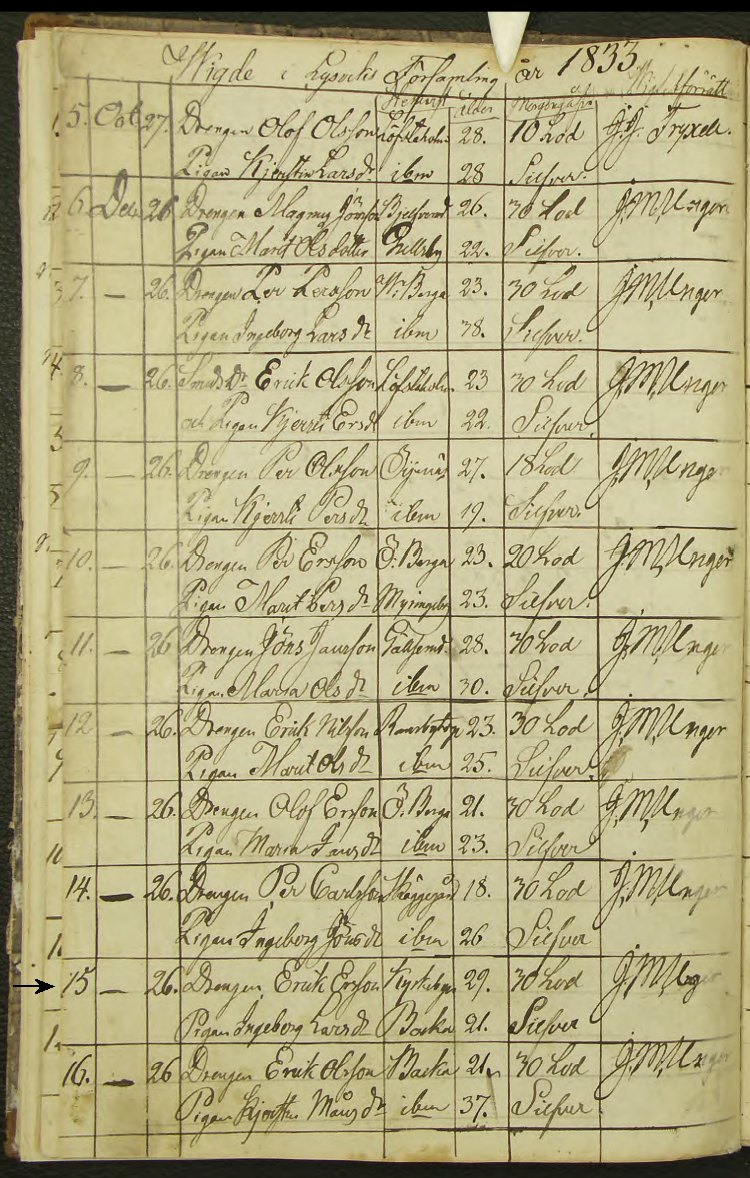 Wigde i Lysviks Församling år 1833
Hemvist Ålder Morgongåfva
5. Oct. 27. Drengen Olof Olsson Löfstaholm 28. 10 Lod
Pigan Kjerstin Larsdr ibm 28 Silfver.
6. Dec. 26 Drengen Magnus Jönsson 26. 30 Lod J.M.Unger
Pigan Marit Olsdotter 22. Silfver.
7. — 26. Drengen Per Persson W. Berga 23. 30 Lod J.M.Unger
Pigan Ingeborg Larsdr ibm 38. Silfver.
8. — 26. Erik Olsson Löfstaholm 23 30 Lod J.M.Unger
och Pigan Kjerrti Ersdr ibm 22. Silfver.
9. — 26. Drengen Per Olsson 27. 18 Lod J.M.Unger
Pigan Kjerrti Persdr ibm 19. Silfver.
10. — 26. Drengen Per Ersson Ö. Berga 23. 20 Lod J.M.Unger
Pigan Marit Persdr 23. Silfver.
11. — 26 Drengen Jöns Jansson 28. 30 Lod J.M.Unger
Pigan Maria Olsdr ibm 30. Silfver.
12 — 26. Drengen Erik Nilsson 23. 30 Lod J.M.Unger
Pigan Marit Olsdr ibm 25. Silfver.
13. — 26. Drengen Olof Ersson Ö. Berga 21. 30 Lod J.M.Unger
Pigan Maria Jansdr ibm 23. Silfver
14. — 26. Drengen Per Carlsson Skäggegård 18. 30 Lod J.M.Unger
Pigan Ingeborg Jönsdr ibm 26 Silfver
15 — 26. Drengen Erik Ersson Kyrkebyn 29. 30 Lod J.M.Unger
Pigan Ingeborg Larsdr Backa 21. Silfver
16. — 26 Drengen Erik Olsson Backa 21. 30 Lod J.M.Unger
Pigan Kjerstin Månsdr ibm 37. Silfver